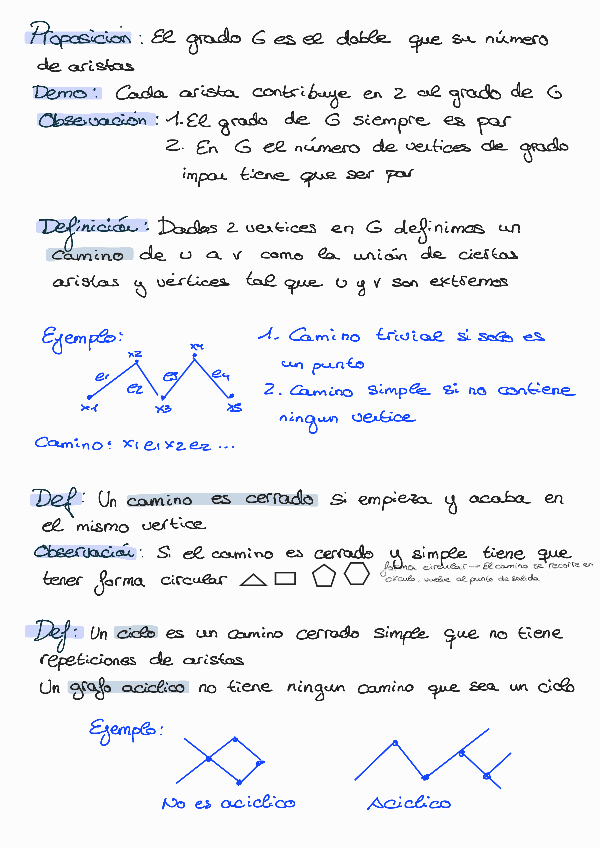 Proposición: El grado G es el doble que su número
de aristas
Demo: Cada arista contribuye en 2 al grado de G
Observación: 1. El grado de G siempre es par
2. En G el número de vertices de grado
impar tiene que ser par
Definición: Dadas 2 vertices en G definimos un
camino de u a v como la unión de ciertas
aristas y vértices tal que u y v son extremos
Ejemplo:
x2 x4
e1 e2 e3 e4
x1 x3 x5
1. Camino trivial si solo es
un punto
2. Camino simple si no contiene
ningun vertice
Camino: x1 e1 x2 e2 ...
Def: Un camino es cerrado si empieza y acaba en
el mismo vertice
Observación: Si el camino es cerrado y simple tiene que
tener forma circular
forma circular → El camino se recorre en
círculo, vuelve al punto de salida
Def: Un ciclo es un camino cerrado simple que no tiene
repeticiones de aristas
Un grafo aciclico no tiene ningun camino que sea un ciclo
Ejemplo:
No es aciclico Aciclico